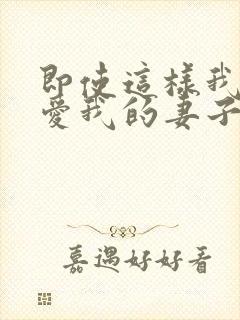 即使這樣我
愛我的妻子
嘉遇好好看